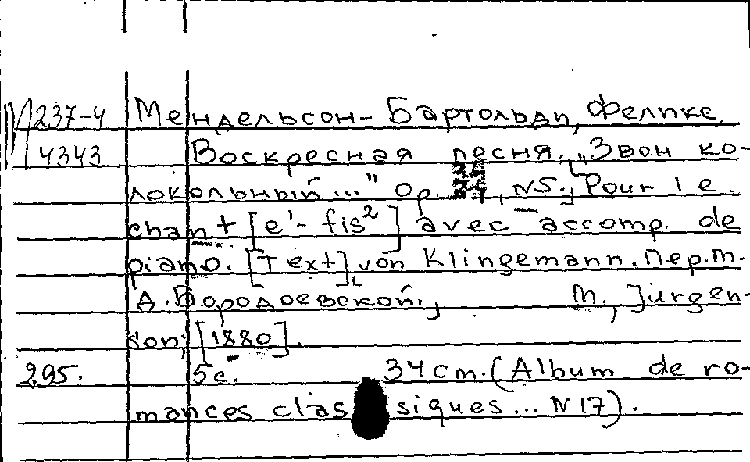 М 237-4 Мендельсон-Бартольди, Феликс.
4343 Воскресная песня. „Звон ко-
локольный..." Op , N5. Pour le
chant [e'-fis²] avec accomp. de
piano. [Text] von Klingemann. Пер. т.
А. Бородоевской. М., Jurgen-
son, [1880].
295. 5 с. 34 cm. (Album de ro-
mances classiques... N 17).